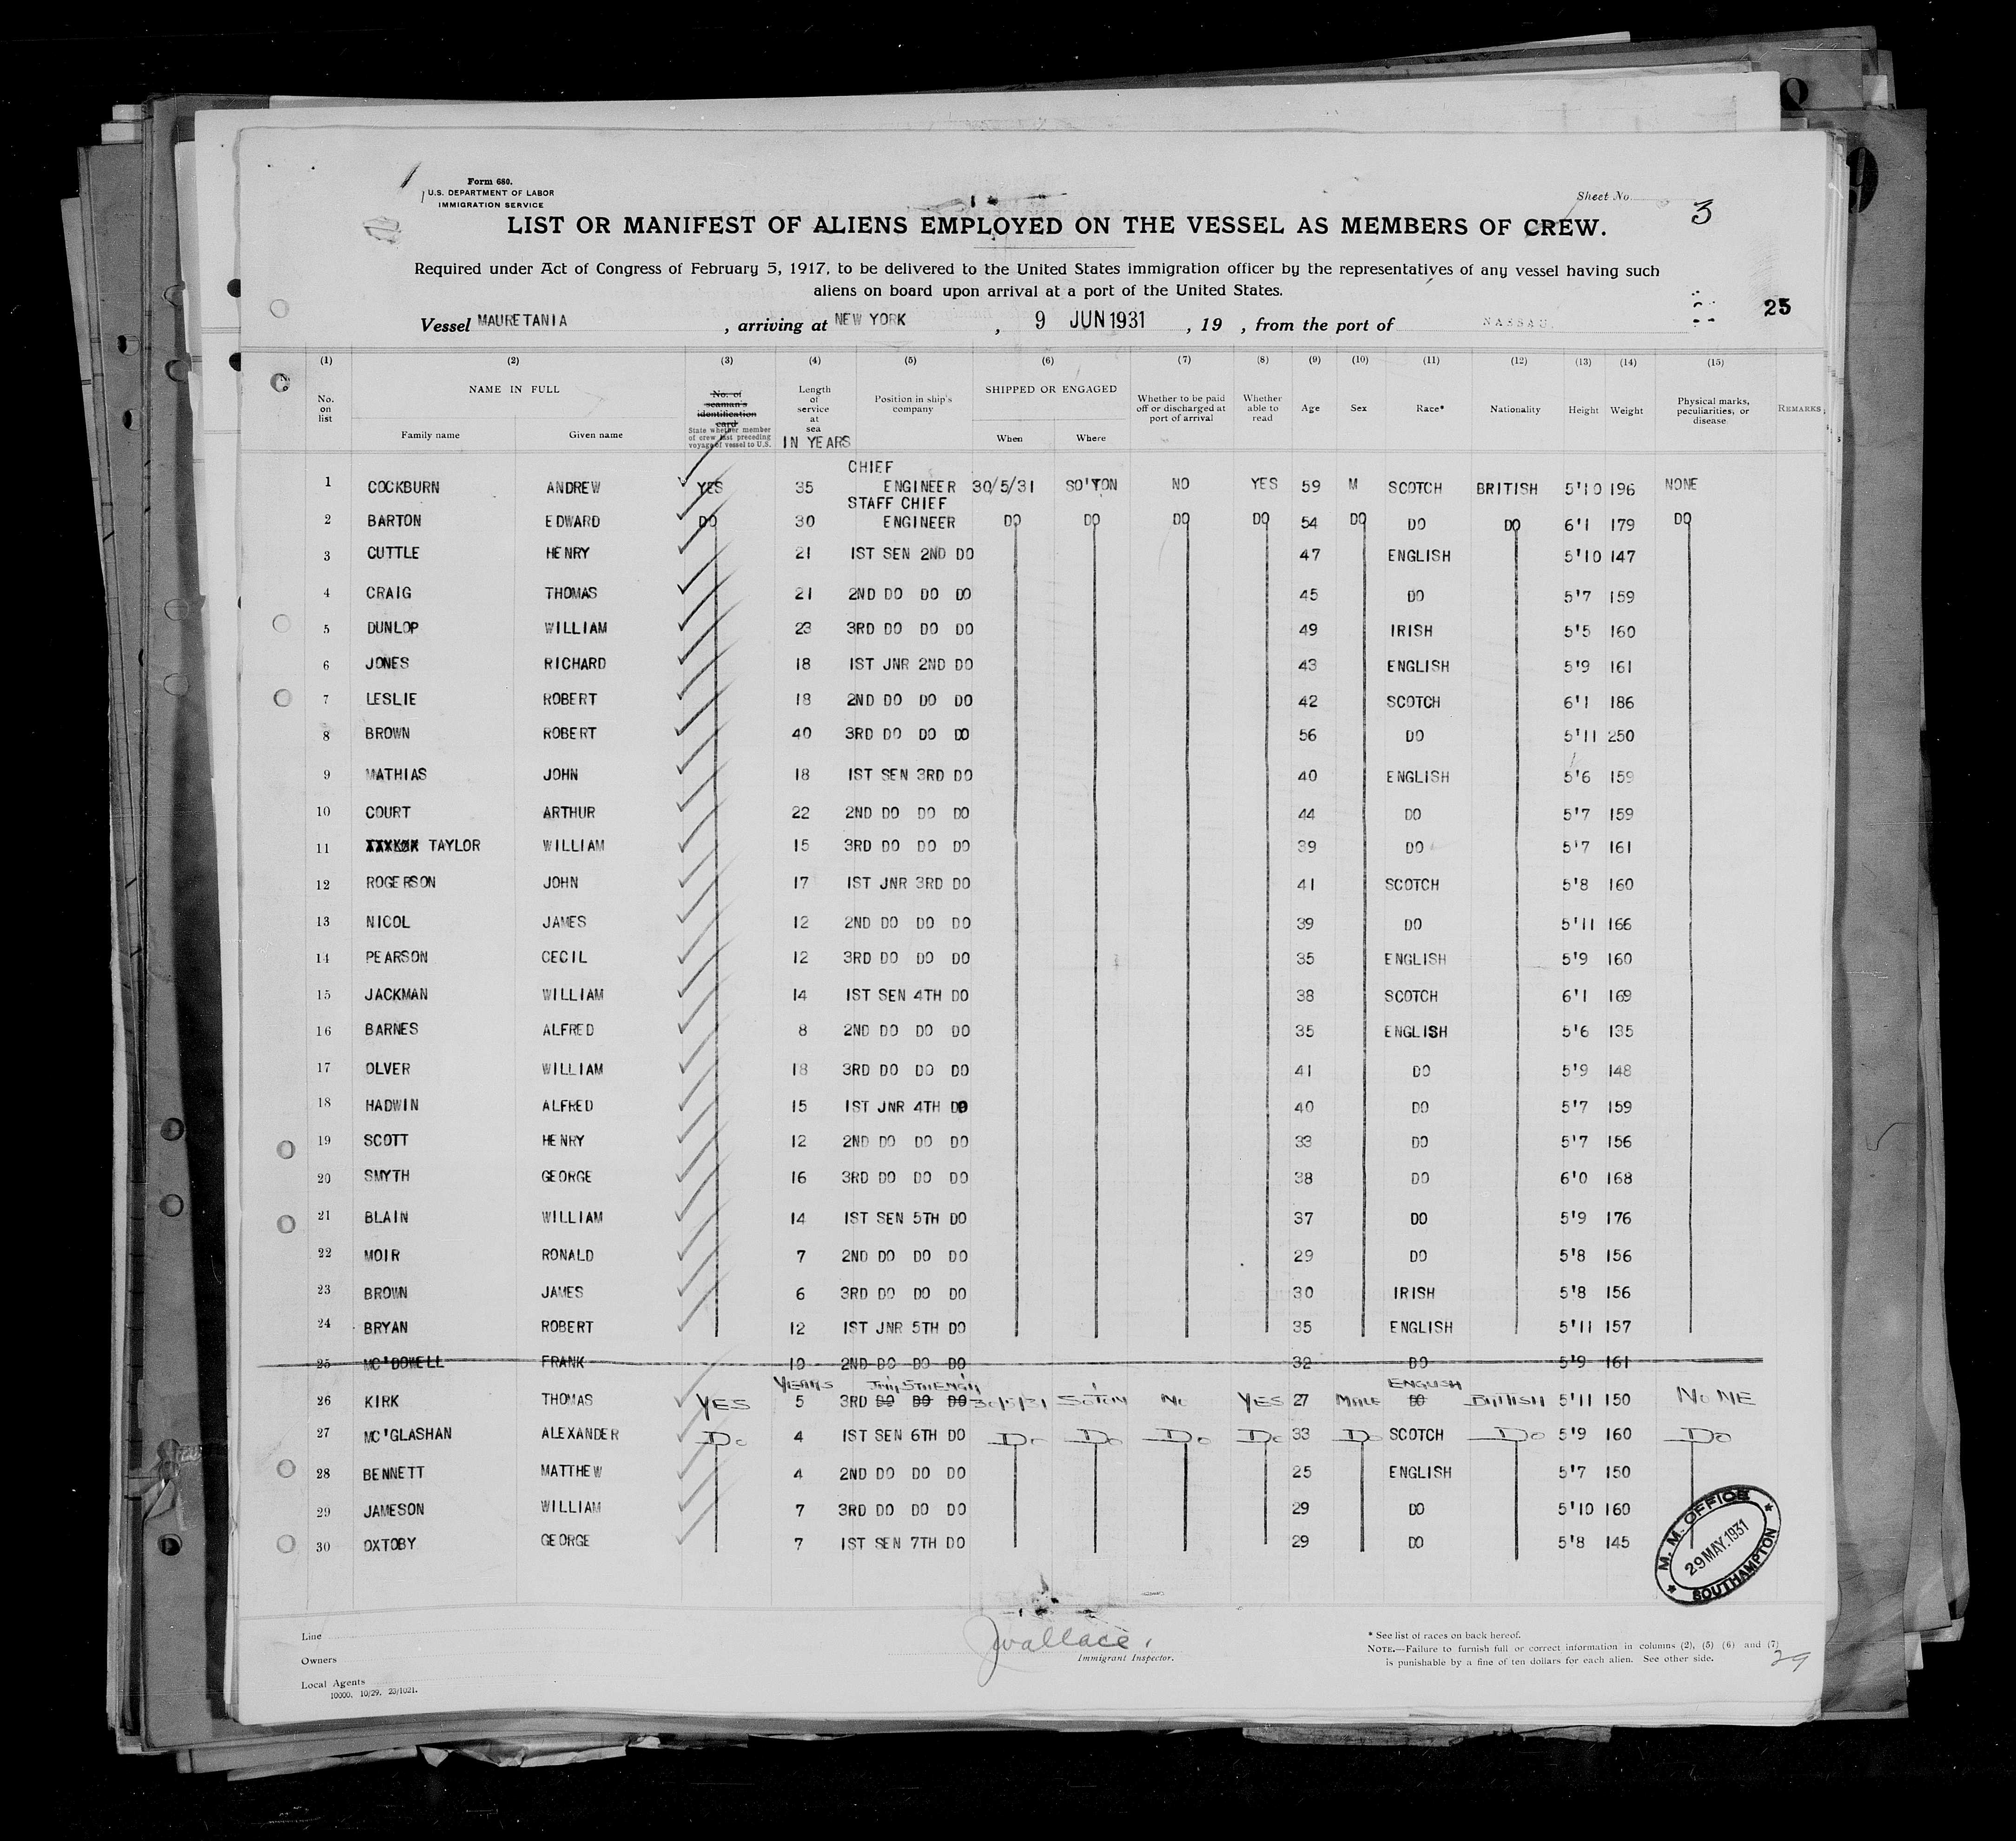 Form 680.
U.S. DEPARTMENT OF LABOR
IMMIGRATION SERVICE
Sheet No. 3
LIST OR MANIFEST OF ALIENS EMPLOYED ON THE VESSEL AS MEMBERS OF CREW.
Required under Act of Congress of February 5, 1917, to be delivered to the United States immigration officer by the representatives of any vessel having such
aliens on board upon arrival at a port of the United States.
25
Vessel MAURETANIA , arriving at NEW YORK , 9 JUN 1931 , 19 , from the port of NASSAU.
(1) (2) (3) (4) (5) (6) (7) (8) (9) (10) (11) (12) (13) (14) (15)
No. on list NAME IN FULL Family name Given name No. of seaman's identification card State whether member of crew last preceding voyage of vessel to U.S. Length of service at sea IN YEARS Position in ship's company SHIPPED OR ENGAGED When Where Whether to be paid off or discharged at port of arrival Whether able to read Age Sex Race* Nationality Height Weight Physical marks, peculiarities, or disease REMARKS
1 COCKBURN ANDREW YES 35 CHIEF ENGINEER 30/5/31 SO'TON NO YES 59 M SCOTCH BRITISH 5'10 196 NONE
2 BARTON EDWARD DO 30 STAFF CHIEF ENGINEER DO DO DO DO 54 DO DO DO 6'1 179 DO
3 CUTTLE HENRY 21 1ST SEN 2ND DO 47 ENGLISH 5'10 147
4 CRAIG THOMAS 21 2ND DO DO DO 45 DO 5'7 159
5 DUNLOP WILLIAM 23 3RD DO DO DO 49 IRISH 5'5 160
6 JONES RICHARD 18 1ST JNR 2ND DO 43 ENGLISH 5'9 161
7 LESLIE ROBERT 18 2ND DO DO DO 42 SCOTCH 6'1 186
8 BROWN ROBERT 40 3RD DO DO DO 56 DO 5'11 250
9 MATHIAS JOHN 18 1ST SEN 3RD DO 40 ENGLISH 5'6 159
10 COURT ARTHUR 22 2ND DO DO DO 44 DO 5'7 159
11 TAYLOR WILLIAM 15 3RD DO DO DO 39 DO 5'7 161
12 ROGERSON JOHN 17 1ST JNR 3RD DO 41 SCOTCH 5'8 160
13 NICOL JAMES 12 2ND DO DO DO 39 DO 5'11 166
14 PEARSON CECIL 12 3RD DO DO DO 35 ENGLISH 5'9 160
15 JACKMAN WILLIAM 14 1ST SEN 4TH DO 38 SCOTCH 6'1 169
16 BARNES ALFRED 8 2ND DO DO DO 35 ENGLISH 5'6 135
17 OLVER WILLIAM 18 3RD DO DO DO 41 DO 5'9 148
18 HADWIN ALFRED 15 1ST JNR 4TH DO 40 DO 5'7 159
19 SCOTT HENRY 12 2ND DO DO DO 33 DO 5'7 156
20 SMYTH GEORGE 16 3RD DO DO DO 38 DO 6'0 168
21 BLAIN WILLIAM 14 1ST SEN 5TH DO 37 DO 5'9 176
22 MOIR RONALD 7 2ND DO DO DO 29 DO 5'8 156
23 BROWN JAMES 6 3RD DO DO DO 30 IRISH 5'8 156
24 BRYAN ROBERT 12 1ST JNR 5TH DO 35 ENGLISH 5'11 157
25 MC'DOWELL FRANK 10 2ND DO DO DO 32 DO 5'9 161
26 KIRK THOMAS YES YEARS 5 3RD DO DO DO 30/5/31 SOTON NO YES 27 MALE DO ENGLISH BRITISH 5'11 150 NONE
27 MC'GLASHAN ALEXANDER Do 4 1ST SEN 6TH DO Do Do Do Do 33 Do SCOTCH Do 5'9 160 Do
28 BENNETT MATTHEW 4 2ND DO DO DO 25 ENGLISH 5'7 150
29 JAMESON WILLIAM 7 3RD DO DO DO 29 DO 5'10 160
30 OXTOBY GEORGE 7 1ST SEN 7TH DO 29 DO 5'8 145
M. M. OFFICE
29 MAY. 1931
SOUTHAMPTON
Line
Owners
Local Agents
10000. 10/29. 23/1021.
J Wallace.
Immigrant Inspector.
* See list of races on back hereof.
NOTE.—Failure to furnish full or correct information in columns (2), (5) (6) and (7)
is punishable by a fine of ten dollars for each alien. See other side.
29